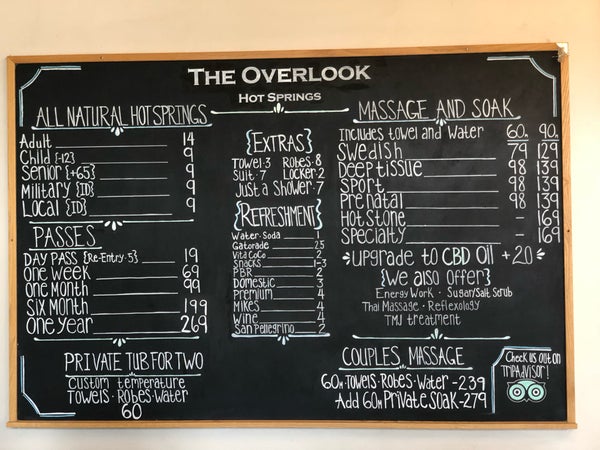 THE OVERLOOK
HOT SPRINGS
ALL NATURAL HOT SPRINGS
Adult 14
Child {-12} 9
Senior {+65} 9
Military {ID} 9
Local {ID} 9
PASSES
DAY PASS {Re-Entry·5} 19
One week 69
One Month 99
Six Month 199
One year 269
PRIVATE TUB FOR TWO
Custom temperature
Towels·Robes·Water
60
{EXTRAS}
Towel·3 Robes·8
Suit·7 Locker·2
Just a Shower·7
{REFRESHMENT}
Water·Soda 1
Gatorade 2.5
Vita CoCo 2
Snacks 1-3
PBR 2
Domestic 3
Premium 4
Mikes 4
Wine 4
San Pellegrino 2
MASSAGE AND SOAK
Includes towel and water 60m 90m
Swedish 79 129
Deep tissue 98 139
Sport 98 139
Prenatal 98 139
Hot Stone - 169
Specialty - 169
upgrade to CBD Oil +20
{We also Offer}
Energy Work · Sugar/Salt Scrub
Thai Massage · Reflexology
TMJ treatment
COUPLES MASSAGE
60m·Towels·Robes·Water -239
Add 60m Private Soak-279
Check us out on
TripAdvisor!